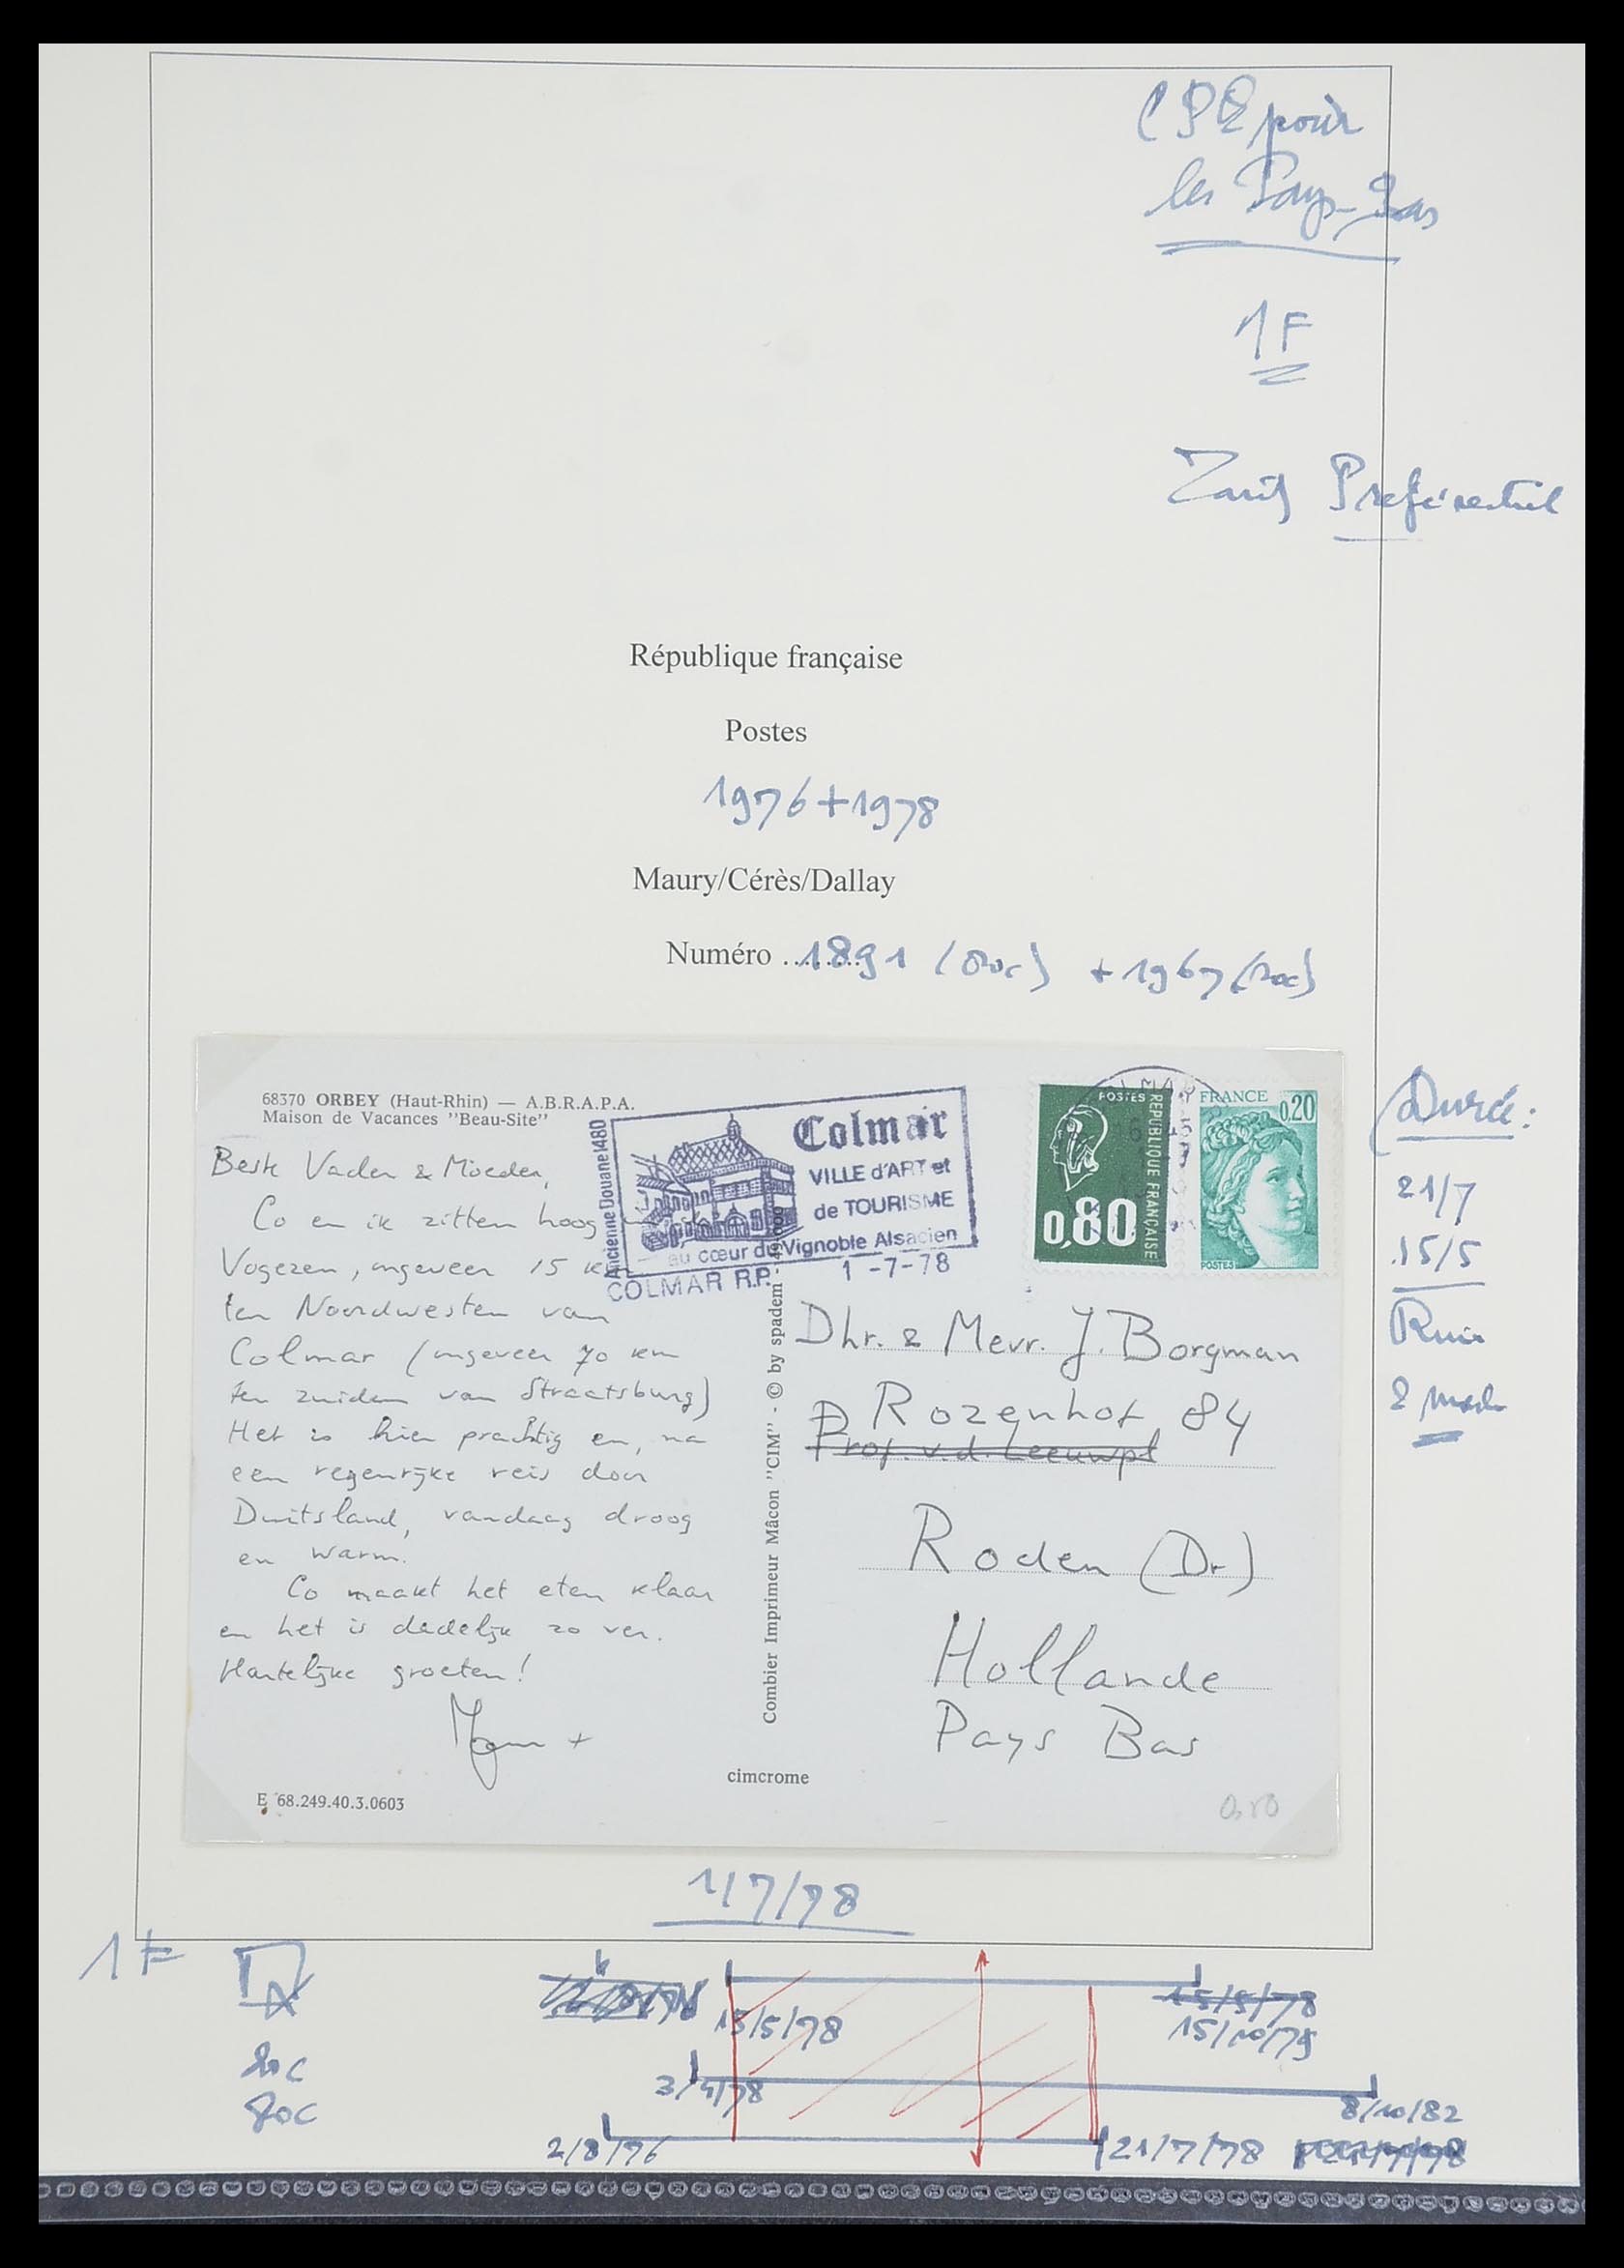 pour
les Pays-Bas
1F
Tarif Préférentiel
République française
Postes
1976+1978
Maury/Cérès/Dallay
Numéro ........ 1891 (80c) + 1967 (20c)
68370 ORBEY (Haut-Rhin) — A.B.R.A.P.A.
Maison de Vacances "Beau-Site"
Beste Vader & Moeder,
Co en ik zitten hoog
Vogezen, ongeveer 15 km
ten Noordwesten van
Colmar (ongeveer 70 km
ten zuiden van Straatsburg)
Het is hier prachtig en, na
een regenrijke reis door
Duitsland, vandaag droog
en warm.
Co maakt het eten klaar
en het is dadelijk zo ver.
Hartelijke groeten!
E 68.249.40.3.0603
Ancienne Douane 1480
Colmar
VILLE d'ART et
de TOURISME
au cœur du Vignoble Alsacien
COLMAR R.P. 1 -7-78
Combier Imprimeur Mâcon "CIM" - © by spadem -
cimcrome
POSTES
REPUBLIQUE FRANÇAISE
0,80
FRANCE
0,20
POSTES
Dhr. & Mevr. J. Borgman
Rozenhof 84
Prof. v.d. Leeuwpt
Roden (Dr)
Hollande
Pays Bas
0,80
Durée:
21/7
15/5
2 mois
1/7/78
1F
15/5/78
15/5/78
15/10/79
20c
3/4/78
8/10/82
80c
2/8/76
21/7/78